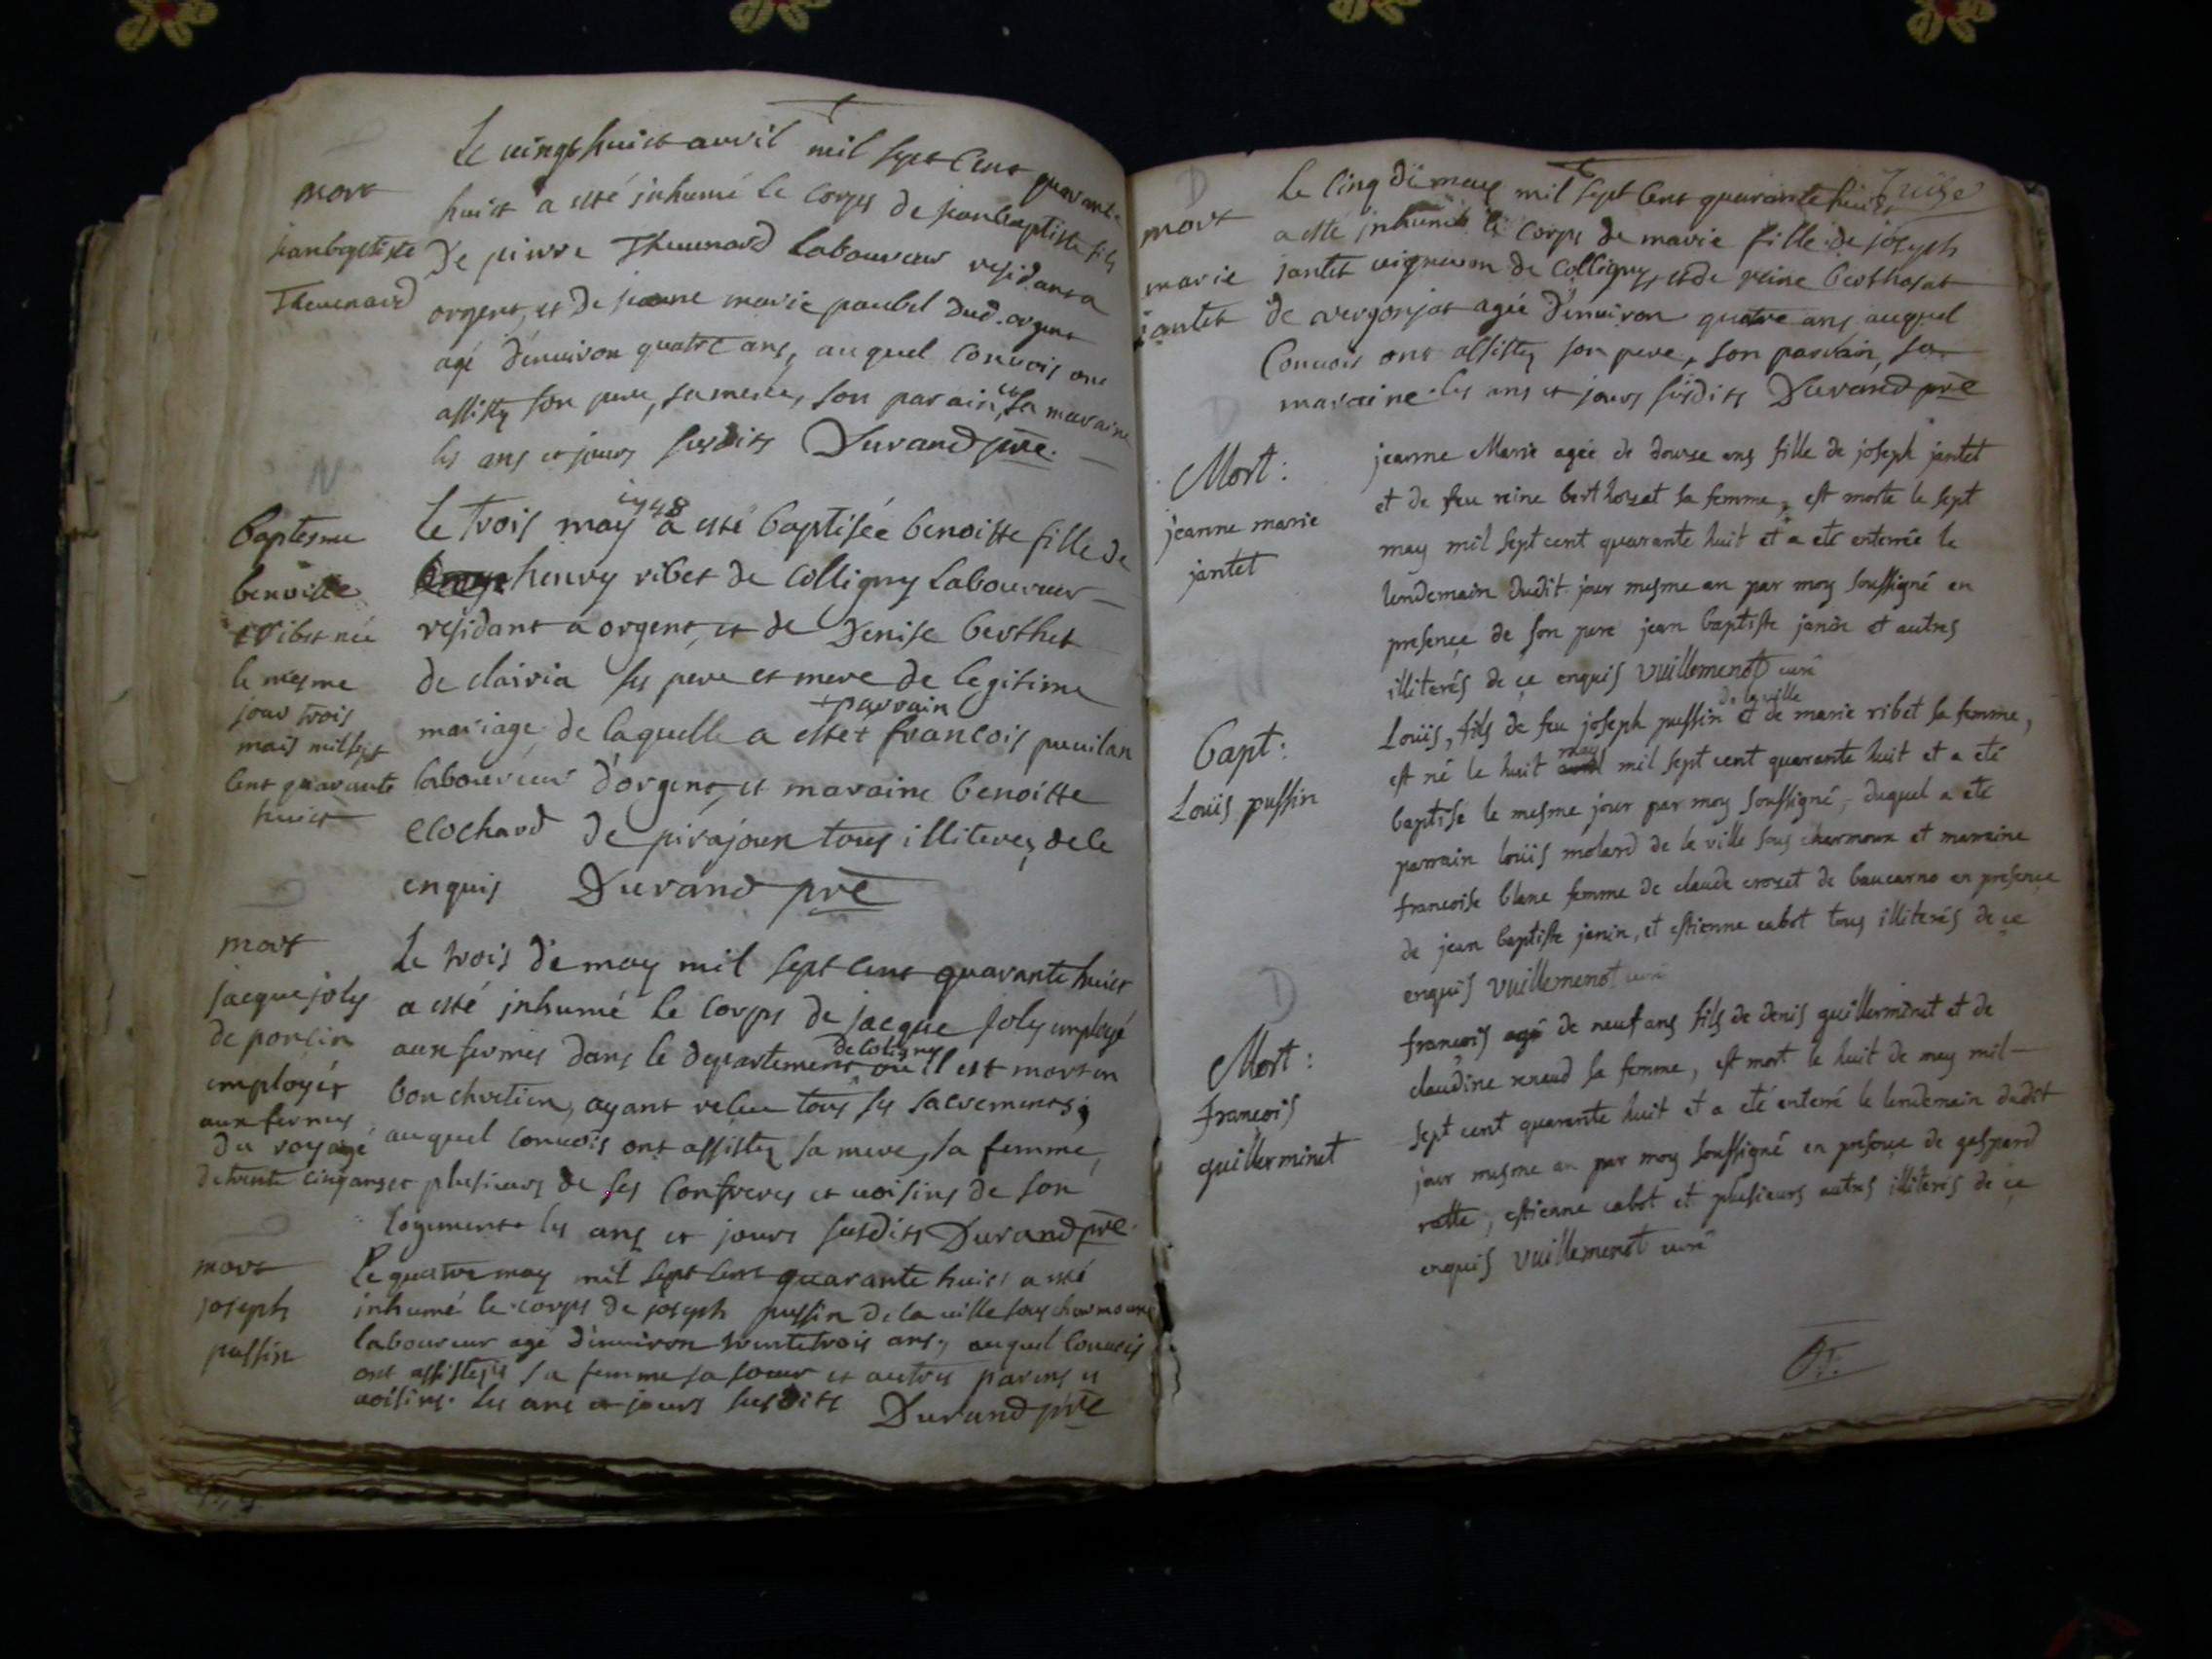 Le vingt huict avril mil sept cent quarante
mort
huict a esté inhumé le corps de jeanbaptiste fils
jeanbaptiste
de pierre Thevenard laboureur residant a
Thevenard
orgent, et de jeanne marie paubel dud. orgent
agé d'environ quatre ans, auquel convois ont
assisty son pere, sa mere, son parain, et sa maraine
les ans et jours susdits Durand pre.
1748
Baptesme
Le trois may a esté baptisée benoiste fille de
benoiste
henry ribet de Colligny laboureur
ribet née
residant a orgent, et de Denise berthet
le mesme
de clairia ses pere et mere de legitime
jour trois
+ parrain
mais mil sept
mariage de laquelle a esté + francois puvilan
cent quarante
laboureur d'orgent, et maraine benoiste
huict
clochard de pirajoux tous illiterez de ce
enquis Durand pre
mort
Le trois de may mil sept cent quarante huict
jacque joly
a esté inhumé le corps de jacque joly employé
de poncin
de coligny
aux fermes dans le departement ou il est mort en
employés
bon chretien, ayant recue tous ses sacrements;
aux fermes
du roy agé
auquel convois ont assistez sa mere, sa femme,
de trente cinq ans
et plusieurs de ses confreres et voisins de son
logement les ans et jours susdits Durand pre
mort
Le quatre may mil sept cent quarante huict a esté
joseph
inhumé le corps de joseph pussin de la ville sous charmoux
pussin
laboureur agé d'environ trente trois ans, auquel convois
ont assistez sa femme sa soeur et autres parens et
voisins. les ans et jours susdits Durand pre
D
Le cinq de may mil sept cent quarante huict
treize
mort
a esté inhumé le corps de marie fille de joseph
marie
jantet vigneron de Colligny, et de reine berthosat
jantet
de vergonjat agée d'environ quatre ans auquel
convois ont assisty son pere, son parrain, sa
maraine les ans et jours susdits Durand pre
Mort :
jeanne Marie agée de douze ans fille de joseph jantet
et de feu reine berthozat sa femme, est morte le sept
jeanne marie
may mil sept cent quarante huit et a eté enterrée le
jantet
lendemain dudit jour mesme an par moy soussigné en
presençe de son pere jean baptiste janin et autres
illiterés de çe enquis Vuillemenot curé
N
de la ville
Bapt :
Loüis, fils de feu joseph pussin et de marie ribet sa femme,
may
est né le huit avril mil sept cent quarante huit et a eté
Loüis pussin
baptise le mesme jour par moy soussigné, duquel a eté
parrain loüis molard de la ville sous charmoux et marraine
francoise blanc femme de claude crozet de baucarno en presençe
de jean baptiste janin, et estienne cabot tous illiterés de çe
enquis Vuillemenot curé
D
Mort :
francois agé de neuf ans fils de denis guillerminet et de
claudine renaud sa femme, est mort le huit de may mil
francois
sept cent quarante huit et a eté enterré le lendemain dudit
guillerminet
jour mesme an par moy soussigné en presençe de gaspard
ratte, estienne cabot et plusieurs autres illiterés de çe
enquis Vuillemenot curé